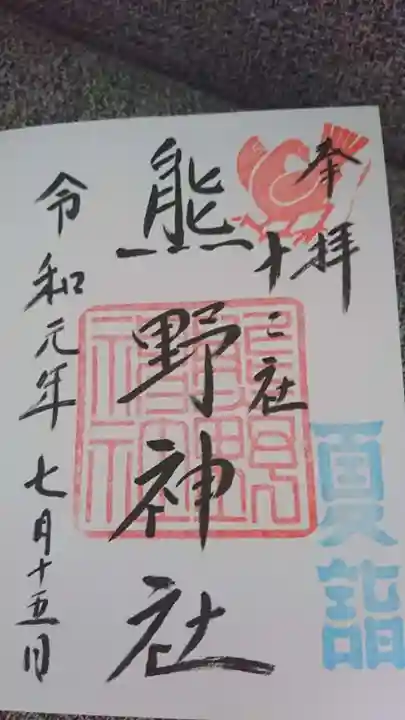 奉拝
十二社
熊野神社
令和元年七月十五日
夏詣
熊野神社